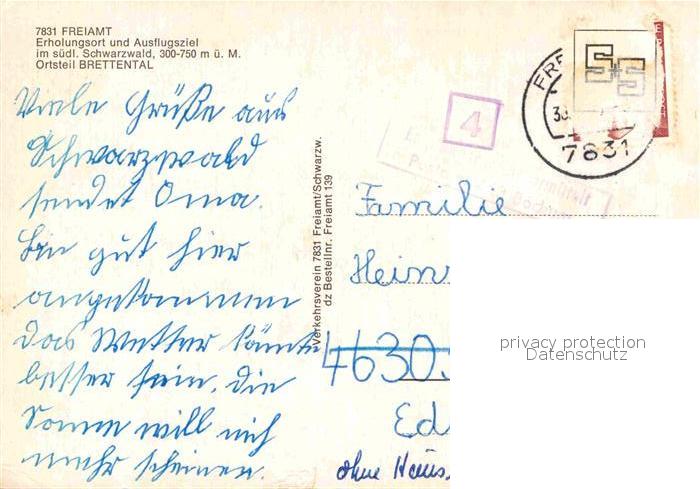 7831 FREIAMT
Erholungsort und Ausflugsziel
im südl. Schwarzwald, 300-750 m ü. M.
Ortsteil BRETTENTAL
Viele Grüße aus
Schwarzwald
sendet Oma.
Bin gut hier
angekommen
das Wetter könnte
besser sein, die
Sonne will nich
mehr scheinen.
Verkehrsverein 7831 Freiamt/Schwarzw.
dz Bestellnr. Freiamt 139
4
FRE
7831
Familie
Hein
4630
Ed
ohne Haus.
privacy protection
Datenschutz